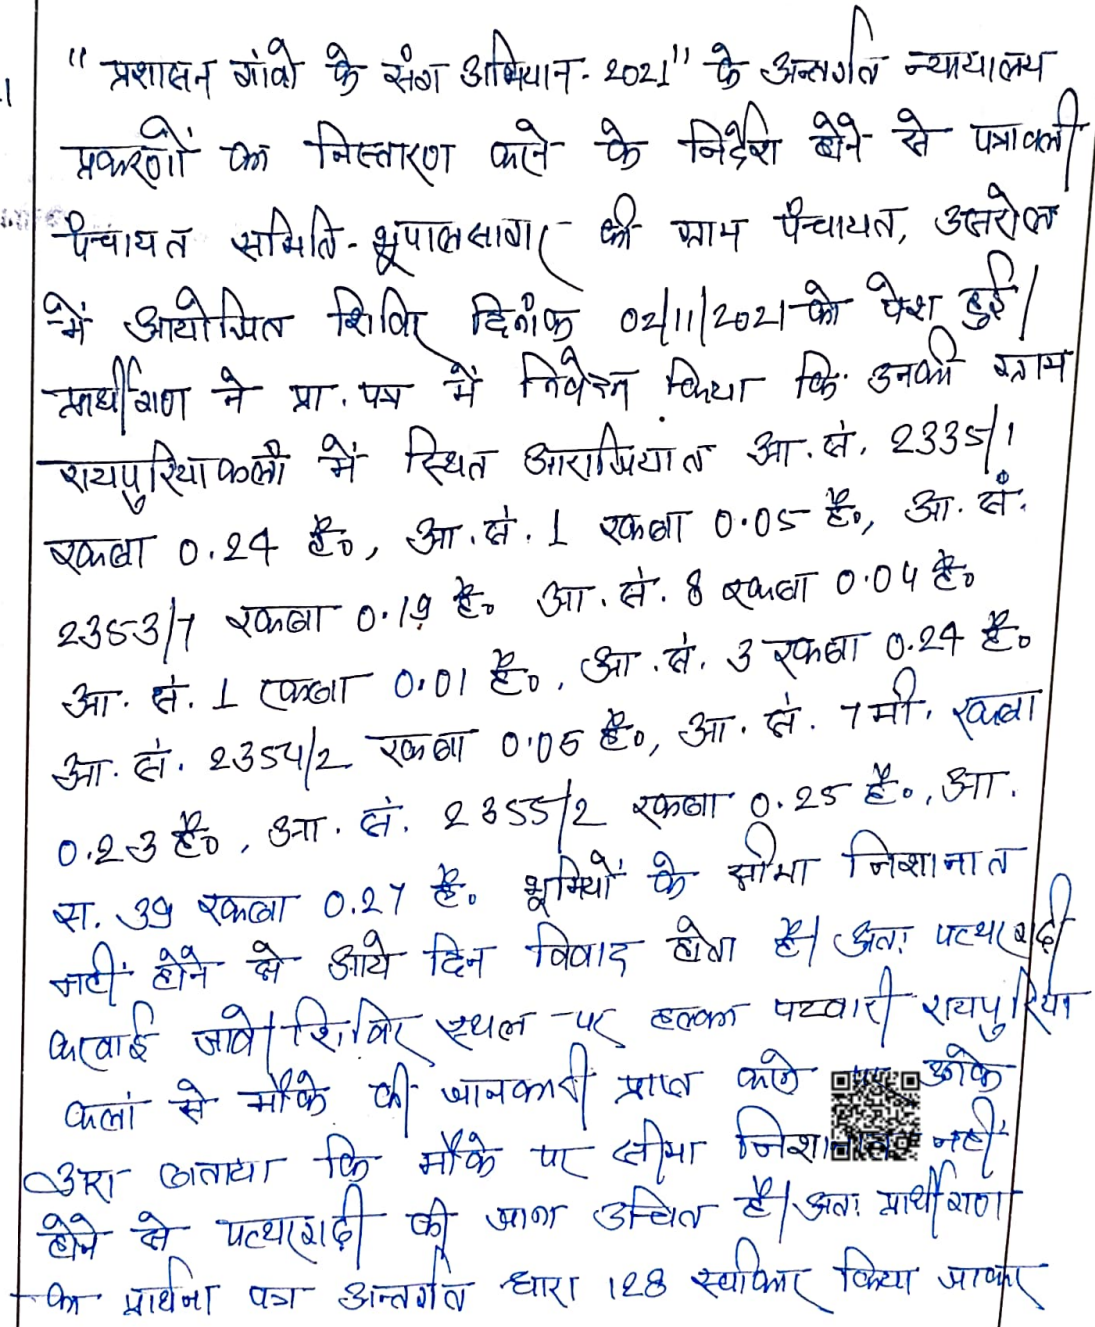 "प्रशासन गांवो के संग अभियान- 2021" के अन्तर्गत न्यायालय
प्रकरणों का निस्तारण करने के निर्देश होने से पत्रावली
पंचायत समिति- भूपालसागर की ग्राम पंचायत,
में आयोजित शिविर दिनांक 02/11/2021 को पेश हुई।
प्रार्थीगण ने प्रा. पत्र में निवेदन किया कि उनकी ग्राम
रायपुरियाकलाँ में स्थित आराजियात आ. सं. 2335/1
रकबा 0.24 है०, आ. सं. 1 रकबा 0.05 है०, आ. सं.
2353/7 रकबा 0.19 है० आ. सं. 8 रकबा 0.04 है०
आ. सं. 1 रकबा 0.01 है०, आ. सं. 3 रकबा 0.24 है०
आ. सं. 2354/2 रकबा 0.05 है०, आ. सं. 7 मी. रकबा
0.23 है०, आ. सं. 2355/2 रकबा 0.25 है०, आ.
स. 39 रकबा 0.27 है० भूमियों के सीमा निशानात
नहीं होने से आये दिन विवाद होता है। अतः पत्थरगढ़ी
करवाई जावे। शिविर स्थल पर हल्का पटवारी रायपुरिया
कलां से मौके की जानकारी प्राप्त
बताया कि मौके पर सीमा नहीं
होने से पत्थरगढ़ी की जाना उचित है। अतः प्रार्थीगण
का प्रार्थना पत्र अन्तर्गत धारा 128 स्वीकार किया जाकर